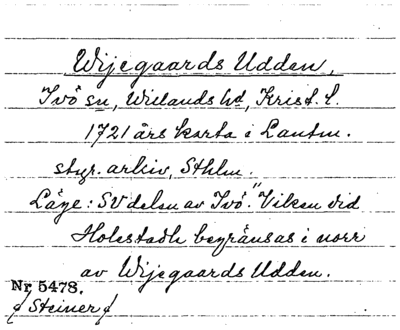 Wijegaards Udden,
Ivö sn, Willands hd, Krist. l.
1721 års karta i Lantm.
styr. arkiv, Sthlm.
Läge: SV delen av Ivö. "Viken vid
Holestadh begränsas i norr
av Wijegaards Udden.
Nr 5478.
/Steiner/